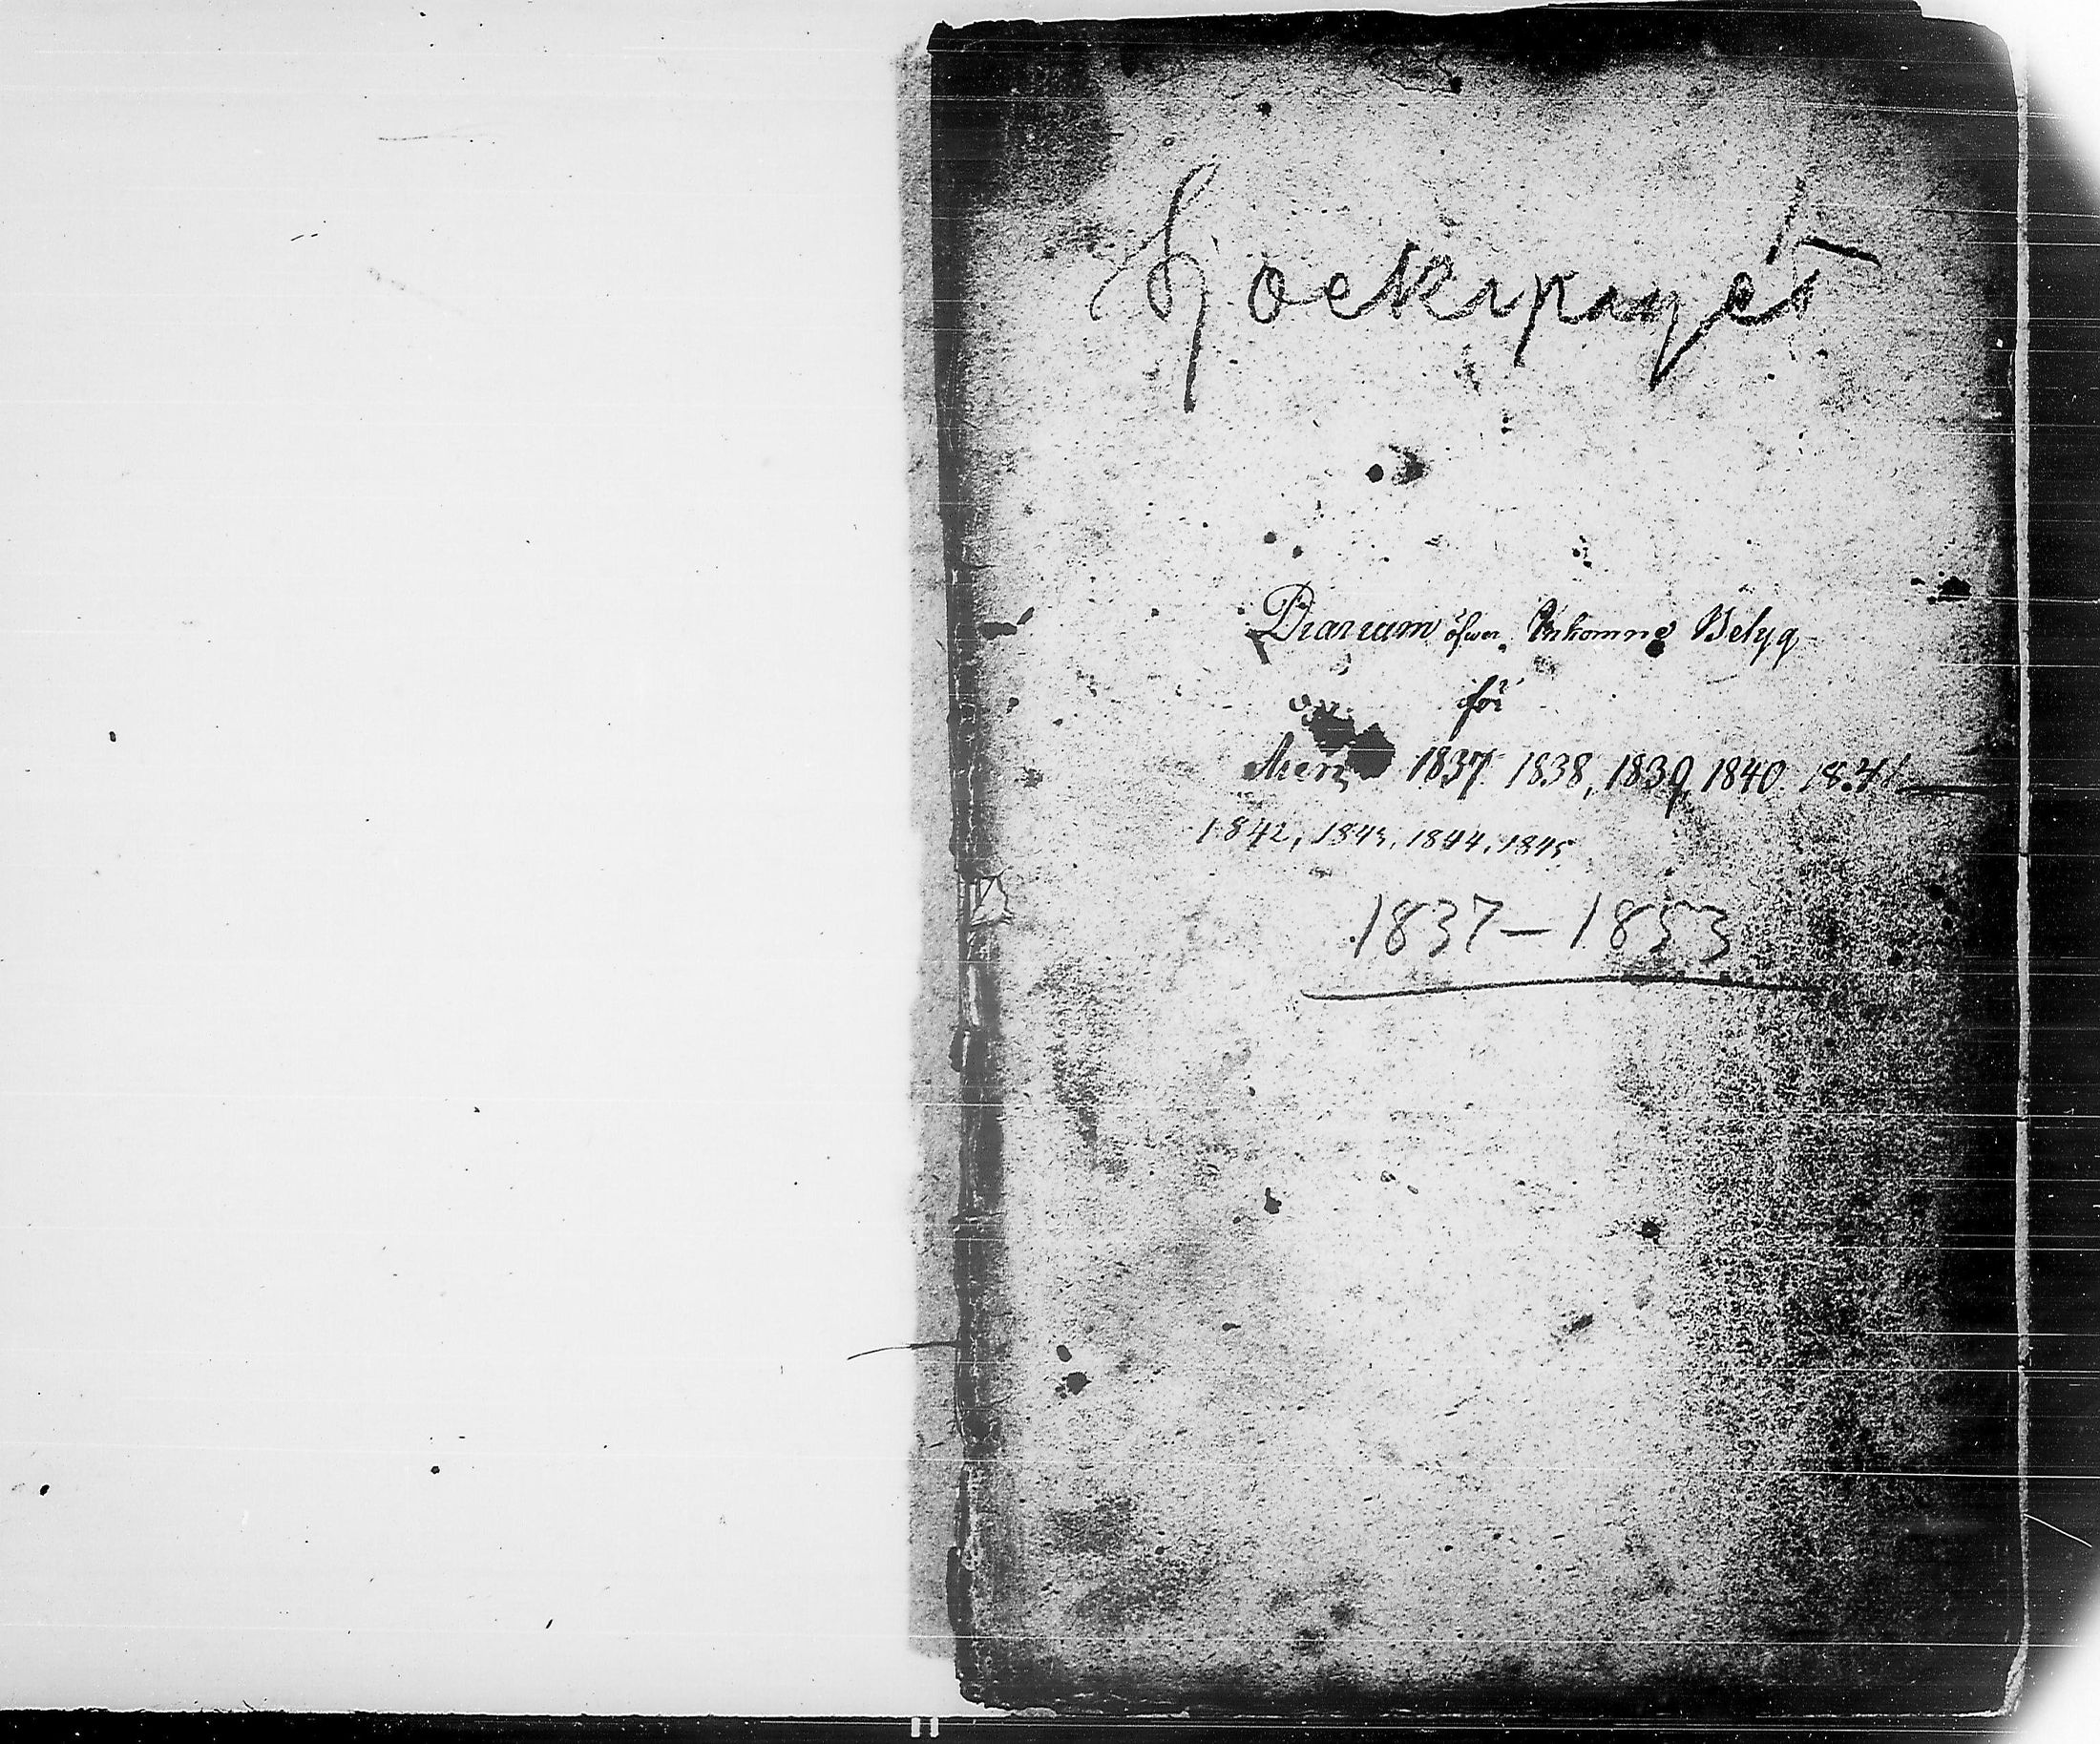 Sockspaget
Diarium öfwer Inkomne Betyg
för
Åren 1837 1838, 1839, 1840. 1841
1842, 1843, 1844, 1845
1837–1853